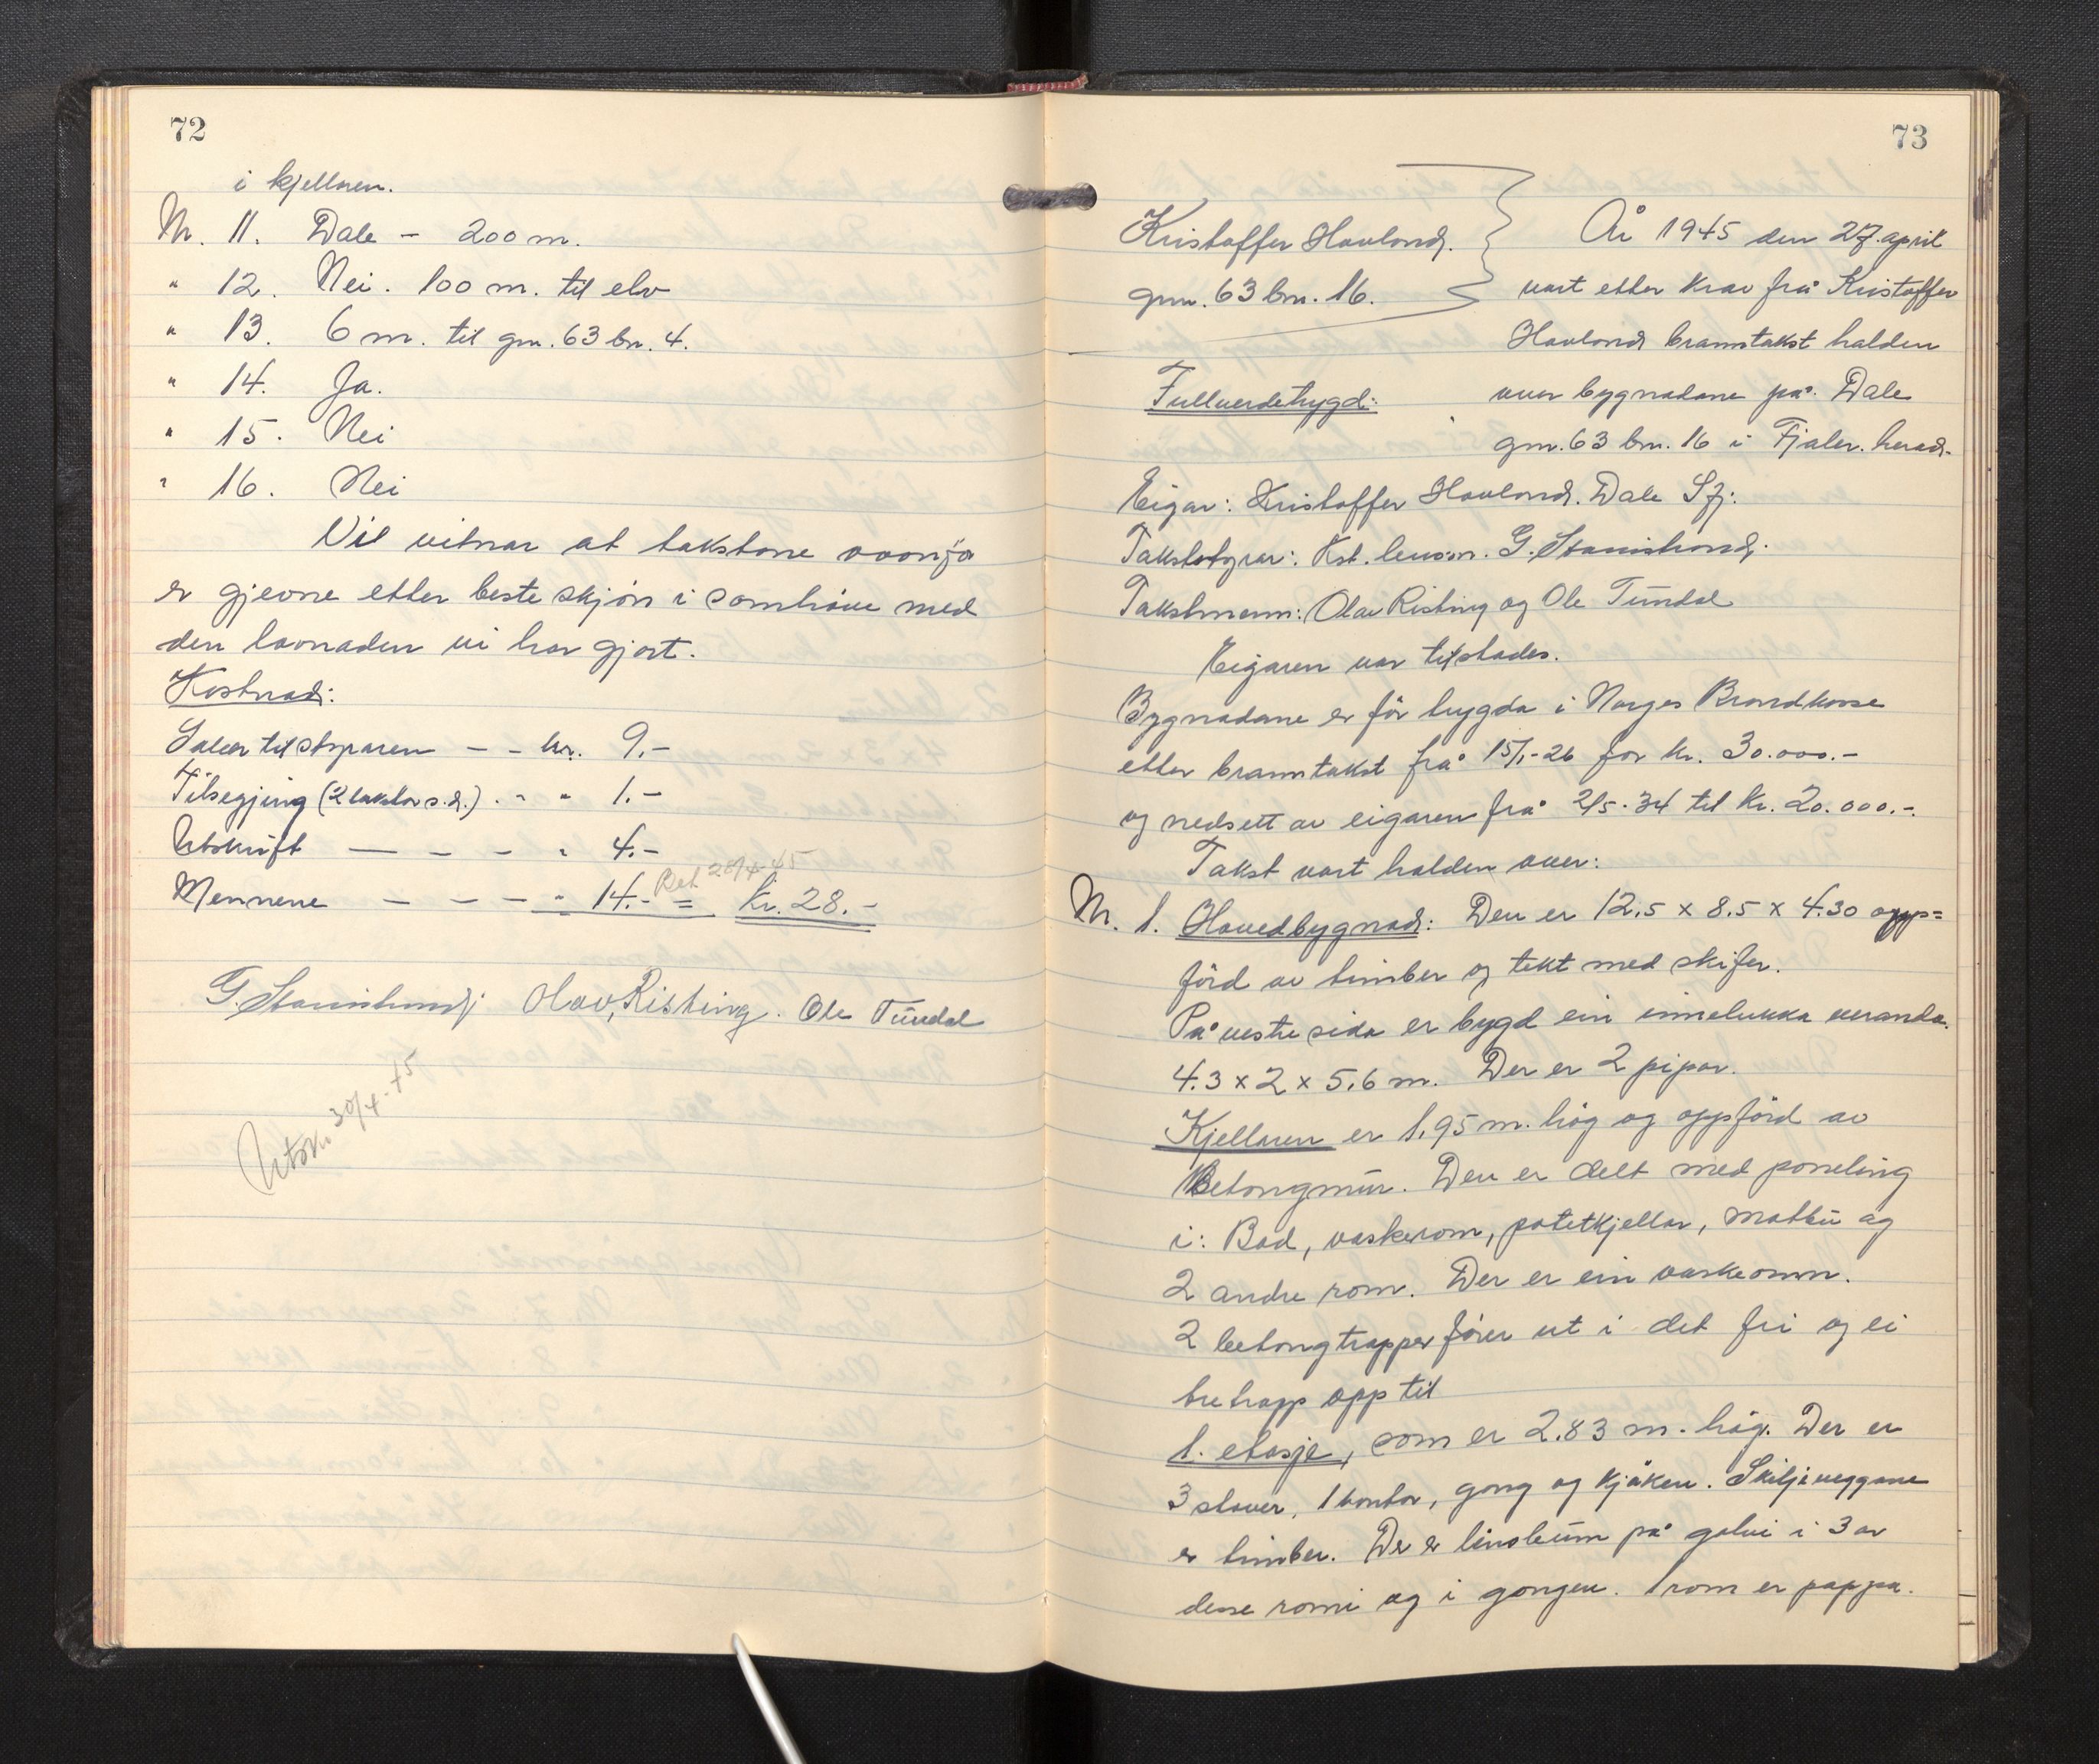 72
i kjellaren.
Nr. 11. Dale – 200 m.
" 12. Nei. 100 m. til elv
" 13. 6 m. til gnr. 63 bn. 4.
" 14. Ja.
" 15. Nei
" 16. Nei
Vil vitnar at takstane
er gjevne etter beste skjön i samhöve med
den lovnaden vi har gjort.
Kostnad:
Salær til styraren – – kr. 9.-
Tilsegjing (2 takstar s.d.) . " " 1.-
Utskrift — – – – " 4.-
Ret 28/4-45
Mennene – – – – " 14.- = kr. 28.-
G. Staurstrand Olav Risting. Ole Tündal
Utskr 30/4-45
73
Kristoffer Havland.
gnr. 63 bnr. 16.
Fullverdetrygd:
År 1945 den 27. april
vart etter krav frå Kristoffer
Havland branntakst halden
over bygnadane på Dale
gnr. 63 bnr. 16 i Fjaler herad.
Eigar: Kristoffer Havland. Dale Sfj.
Takststyrar: Kst. lensm. G. Staurstrand.
Takstmenn: Olav Risting og Ole Tündal
Eigaren var tilstades.
Bygnadane er för trygda i Norges Brandkasse
etter branntakst frå 15/1-26 for kr. 30.000.-
og nedsett av eigaren frå 2/5-34 til kr. 20.000.-.
Takst vart halden over:
Nr. 1. Hovedbygnad: Den er 12.5 x 8.5 x 4.30 opp=
förd av timber og tekt med skifer.
På vestre sida er bygd ein innelukka veranda.
4.3 x 2 x 5.6 m. Der er 2 pipor.
Kjellaren er 1.95 m. høg og oppförd av
Betongmür. Den er delt med paneling
i: Bad, vaskerom, potetkjellar, matbü og
2 andre rom. Der er ein vaskeomn.
2 betongtrapper förer ut i det fri og ei
tretrapp opp til
1. etasje, som er 2.83 m. høg. Der er
3 stover, 1 kontor, gang og kjøken. Skiljeveggane
er timber. Der er linoleüm på golvi i 3 av
desse romi og i gangen. 1 rom er pappa.